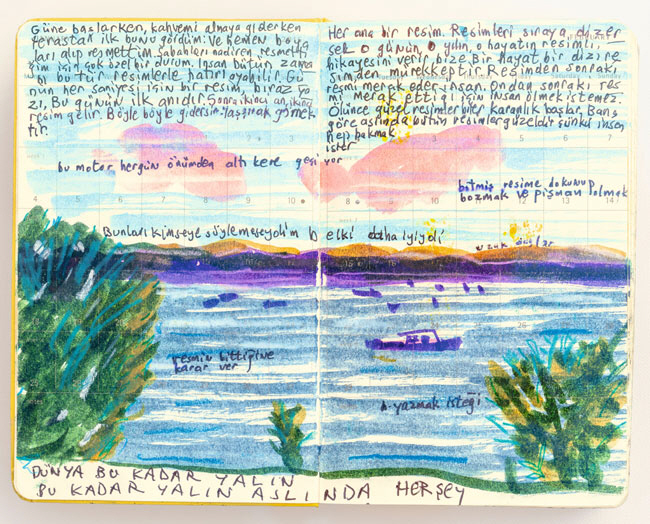 Güne başlarken, kahvemi almaya giderken
terastan ilk bunu gördüm. Ve hemen boya
ları alıp resmettim. Sabahları nadiren resmetti
ğim için çok özel bir durum. İnsan bütün zama
nı bu tür resimlerle hatırlayabilir. Gü
nün her saniyesi için bir resim, biraz ya
zı, Bu günün ilk anıdır. Sonra ikinci an, ikinci
resim gelir. Böyle böyle gidersin. Yaşamak görmek
tir.
Her ana bir resim. Resimleri sıraya dizer
sek o günün, o yılın, o hayatın resimli
hikayesini verir bize. Bir hayat bir dizi re
simden mürekkeptir. Resimden sonraki
resmi merak eder insan. Ondan sonraki res
mi merak ettiği için insan ölmek istemez.
Ölünce güzel resimler biter, karanlık başlar. Bana
göre aslında bütün resimler güzeldir çünkü insan
hep bakmak
ister
bu motor hergün önümden altı kere geçiyor
bitmiş resime dokunup
bozmak ve pişman olmak
Bunları kimseye söylemeseydim belki daha iyiydi
uzak
resmin bittiğine
karar ver
yazmak isteği
DÜNYA BU KADAR YALIN
BU KADAR YALIN ASLINDA HERŞEY